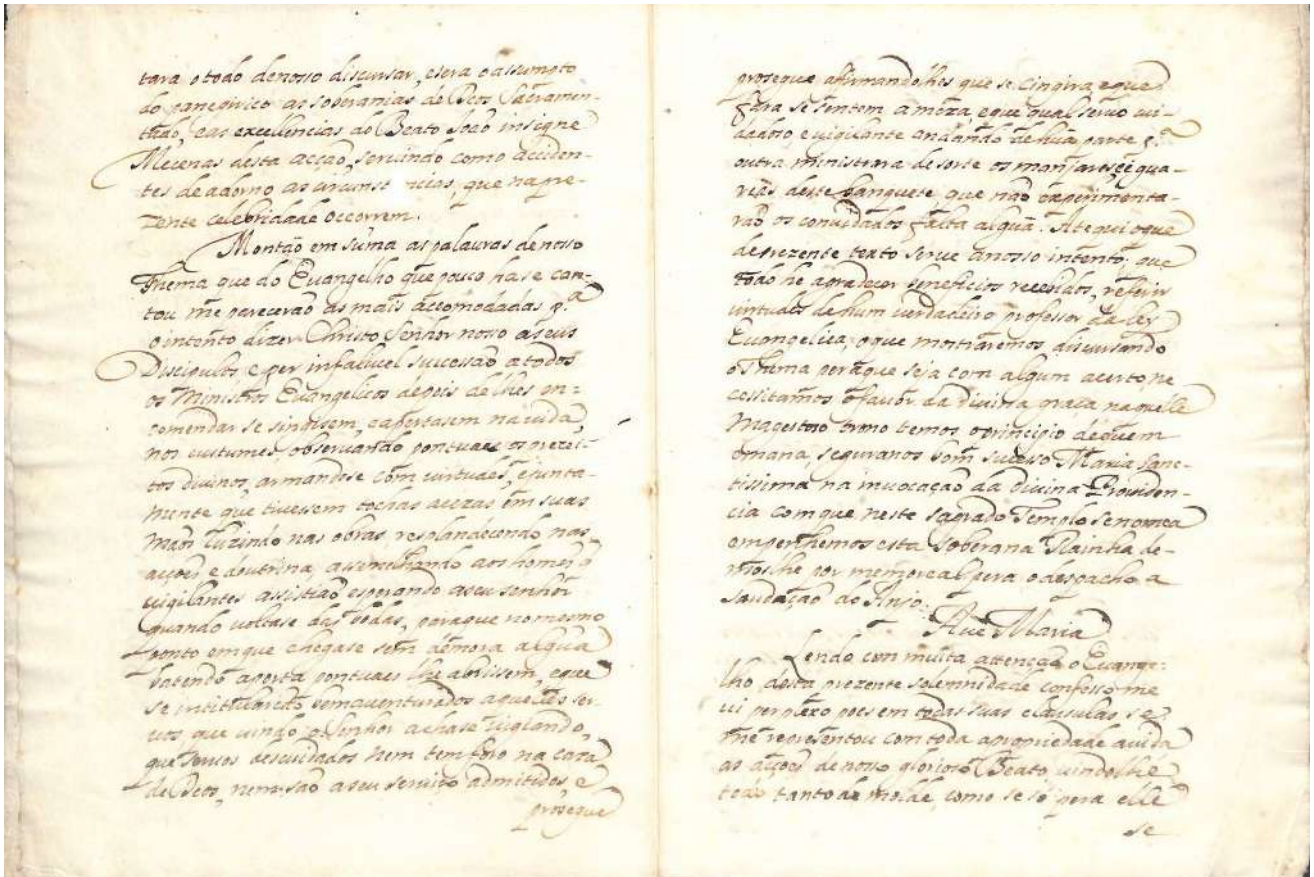 tara o todo de nosso discursar, e sera o assumpto
do panegirico as soberanias de Deos Sacramen-
tado, e as excellencias do Beato João insigne
Mecenas desta acção, servindo como acciden-
tes de adorno as circunst cias, que na pre-
zente celebridade occorrem.
Montão em suma as palavras de nosso
Thema que do Evangelho que pouco ha se can-
tou me parecerão as mais accomodadas p.ª
o intento dizer Christo Senhor nosso a seus
Discipulos, e per infalivel sucessão a todos
os Ministros Evangelicos depois de lhes en-
comendar se singisem, e apertasem na vida,
nos custumes, observando pontuaes os precei-
tos divinos, armandose com virtudes, e junta-
mente que tivessem tochas acezas em suas
mãos luzindo nas obras, resplandecendo nas
acções e doutrina, assemelhando aos homens q
vigilantes assistião esperando a seu senhor
quando voltase das vodas, paraque no mesmo
ponto em que chegase sem demora algũa
batendo a porta pontuaes lhe abrissem, e que
se intitularão bemaventurados aquelles ser-
vos, que vindo o Senhor achase vigiando,
que servos descuidados nem tem foro na caza
de Deos, nem são a seu serviço admitidos, e
prosegue
prosegue afirmandolhes que se cingira, e que
fara se sentem a meza, e que qual servo cui-
dadozo, e vigilante andando de hũa parte p.ª
outra ministrara de sorte os manjares, e igua-
rias deste banquete, que não experimenta-
rão os convidados falta algũa. Ate qui o que
do prezente texto serve a nosso intento, que
todo he agradecer beneficios recebidos, referir
virtudes de hum verdadeiro professor da ley
Evangelica, o que mostraremos discursando
o Thema peraque seja com algum acerto, ne
cessitamos o favor da divina graça naquelle
Magestozo trono temos o principio de quem
emana, seguranos bom sucesso Maria Sanc-
tissima na invocação da divina Providen-
cia com que neste sagrado Templo se nomea
empenhemos esta soberana Rainha de-
moslhe por memoreal pera o despacho a
saudação do Anjo.
Ave Maria
Lendo com muita attenção o Evange-
lho desta prezente solemnidade confesso me
vi perplexo pois em todas suas clausulas se
me representou com toda a propriedade a vida
as acções de nosso glorioso Beato, vindolhe
todo tanto de molde, como se so pera elle
se